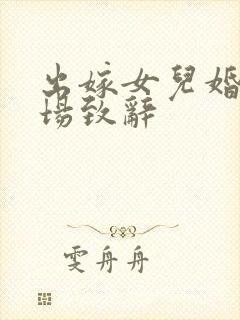 出嫁女兒婚
場致辭
雯舟舟